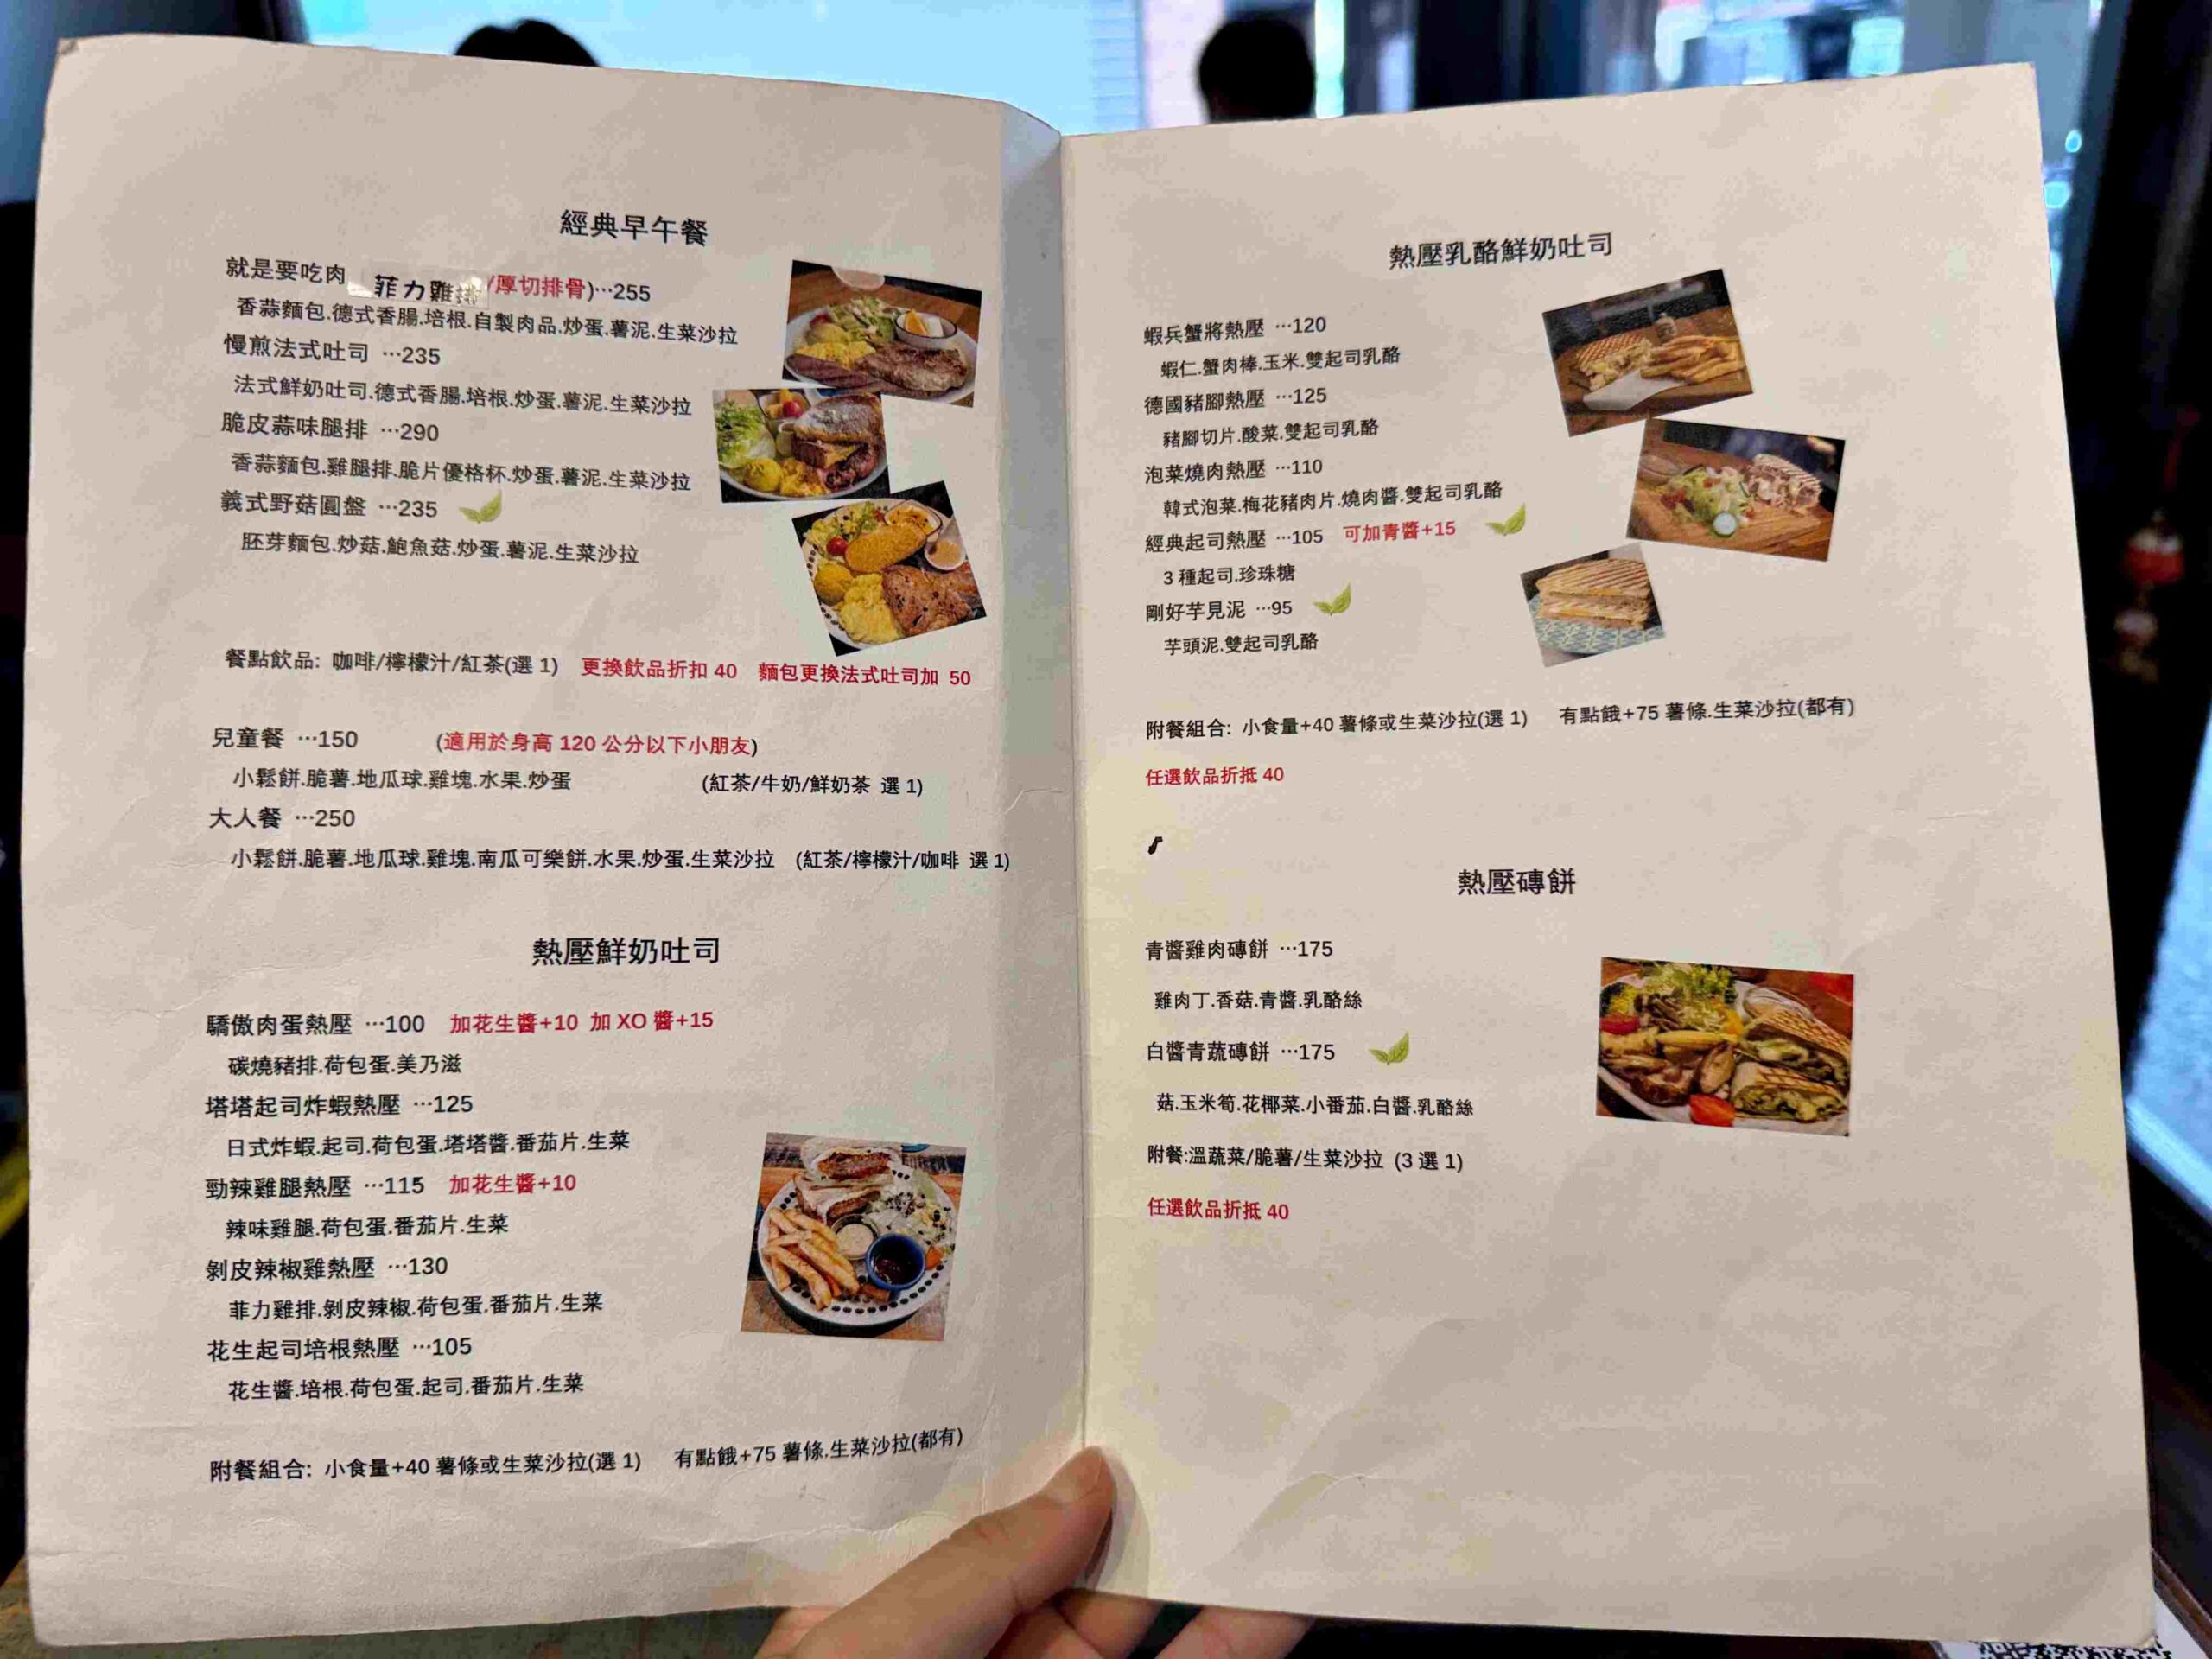 經典早午餐
就是要吃肉 菲力雞排/厚切排骨)…255
香蒜麵包.德式香腸.培根.自製肉品.炒蛋.薯泥.生菜沙拉
慢煎法式吐司 …235
法式鮮奶吐司.德式香腸.培根.炒蛋.薯泥.生菜沙拉
脆皮蒜味腿排 …290
香蒜麵包.雞腿排.脆片優格杯.炒蛋.薯泥.生菜沙拉
義式野菇圓盤 …235
胚芽麵包.炒菇.鮑魚菇.炒蛋.薯泥.生菜沙拉
餐點飲品: 咖啡/檸檬汁/紅茶(選 1) 更換飲品折扣 40 麵包更換法式吐司加 50
兒童餐 …150 (適用於身高 120 公分以下小朋友)
小鬆餅.脆薯.地瓜球.雞塊.水果.炒蛋 (紅茶/牛奶/鮮奶茶 選 1)
大人餐 …250
小鬆餅.脆薯.地瓜球.雞塊.南瓜可樂餅.水果.炒蛋.生菜沙拉 (紅茶/檸檬汁/咖啡 選 1)
熱壓鮮奶吐司
驕傲肉蛋熱壓 …100 加花生醬+10 加 XO 醬+15
碳燒豬排.荷包蛋.美乃滋
塔塔起司炸蝦熱壓 …125
日式炸蝦.起司.荷包蛋.塔塔醬.番茄片.生菜
勁辣雞腿熱壓 …115 加花生醬+10
辣味雞腿.荷包蛋.番茄片.生菜
剝皮辣椒雞熱壓 …130
菲力雞排.剝皮辣椒.荷包蛋.番茄片.生菜
花生起司培根熱壓 …105
花生醬.培根.荷包蛋.起司.番茄片.生菜
附餐組合: 小食量+40 薯條或生菜沙拉(選 1) 有點餓+75 薯條.生菜沙拉(都有)
熱壓乳酪鮮奶吐司
蝦兵蟹將熱壓 …120
蝦仁.蟹肉棒.玉米.雙起司乳酪
德國豬腳熱壓 …125
豬腳切片.酸菜.雙起司乳酪
泡菜燒肉熱壓 …110
韓式泡菜.梅花豬肉片.燒肉醬.雙起司乳酪
經典起司熱壓 …105 可加青醬+15
3 種起司.珍珠糖
剛好芋見泥 …95
芋頭泥.雙起司乳酪
附餐組合: 小食量+40 薯條或生菜沙拉(選 1) 有點餓+75 薯條.生菜沙拉(都有)
任選飲品折抵 40
熱壓磚餅
青醬雞肉磚餅 …175
雞肉丁.香菇.青醬.乳酪絲
白醬青蔬磚餅 …175
菇.玉米筍.花椰菜.小番茄.白醬.乳酪絲
附餐:溫蔬菜/脆薯/生菜沙拉 (3 選 1)
任選飲品折抵 40